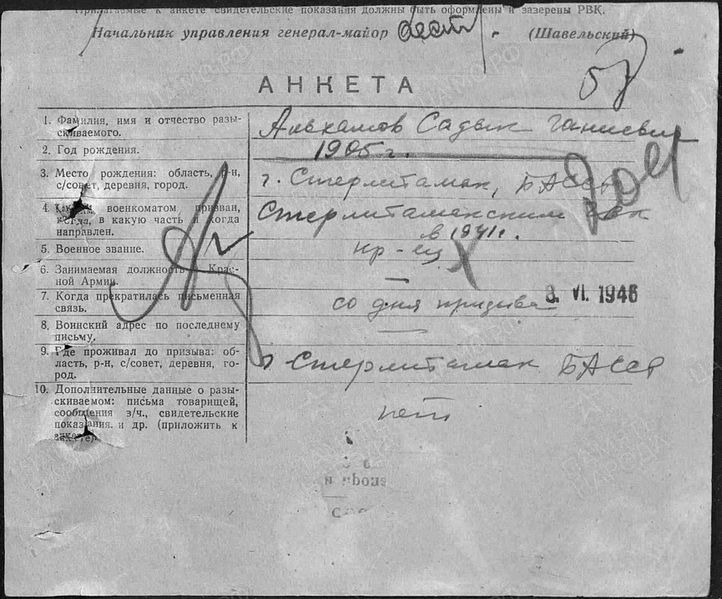 Прилагаемые к анкете свидетельские показания должны быть оформлены и заверены РВК.
Начальник управления генерал-майор (Шавельский)
58
АНКЕТА
1. Фамилия, имя и отчество разы-
скиваемого.
Садык Ганиевич
2. Год рождения.
1905 г.
3. Место рождения: область, р-н,
с/совет, деревня, город.
г. Стерлитамак, БАССР
4. Каким военкоматом призван,
когда, в какую часть и когда
направлен.
Стерлитамакским
в 1941 г.
5. Военное звание.
кр-ец
6. Занимаемая должность в Крас-
ной Армии.
—
7. Когда прекратилась письменная
связь.
со дня призыва
8. VI. 1946
8. Воинский адрес по последнему
письму.
—
9. Где проживал до призыва: об-
ласть, р-н, с/совет, деревня, го-
род.
г. Стерлитамак БАССР
10. Дополнительные данные о разы-
скиваемом: письма товарищей,
сообщения в/ч., свидетельские
показания. и др. (приложить к
анкете)
нет